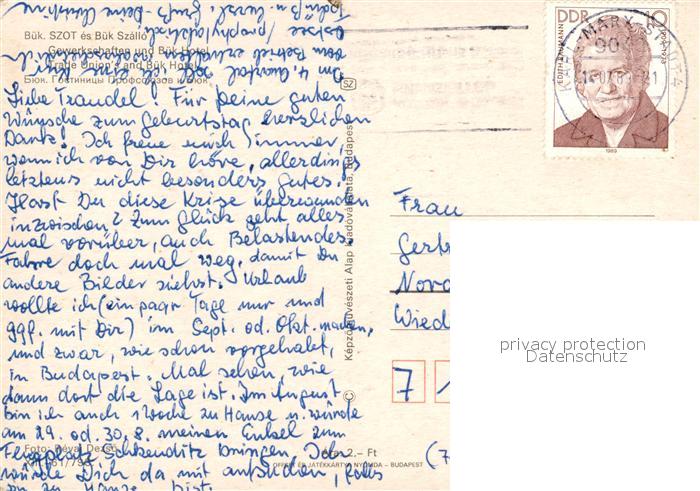 Bük. SZOT és Bük Szálló
Gewerkschaften und Bük Hotel
Trade Union's and Bük Hotel
Бюк. Гостиницы Профсоюзов и Бюк
Liebe Traudel! Für Deine guten
Wünsche zum Geburtstag herzlichen
Dank! Ich freue mich immer,
wenn ich von Dir höre, allerdings
letztens nicht besonders gutes.
Hast Du diese Krise überwunden
inzwischen? Zum Glück geht alles
mal vorüber, auch Belastendes.
Fahre doch mal weg, damit Du
andere Bilder siehst. Urlaub
wollte ich (ein paar Tage nur und
ggf. mit Dir) im Sept. od. Okt. machen,
und zwar, wie schon vorgehabt,
in Budapest. Mal sehen, wie
dann dort die Lage ist. Im August
bin ich auch 1 Woche zu Hause u. würde
am 29. od. 30.8. meinen Enkel zum
Flugplatz Schkeuditz bringen. Ich
würde Dich da mit aufsuchen, falls
Du zu Hause bist.
Im 4. Quartal soll ich eine Kur
vom Betrieb
Ostsee (prophylaktisch)
Foto: Révai Dezső
Ára: 2.– Ft
OFFSET ÉS JÁTÉKKÁRTYA NYOMDA – BUDAPEST
Képzőművészeti Alap Kiadóvállalata, Budapest
SZ
DDR 10
1989
KARL-MARX-STADT 4
Frau
Gert
Nord
Wied
7 1
(7
privacy protection
Datenschutz